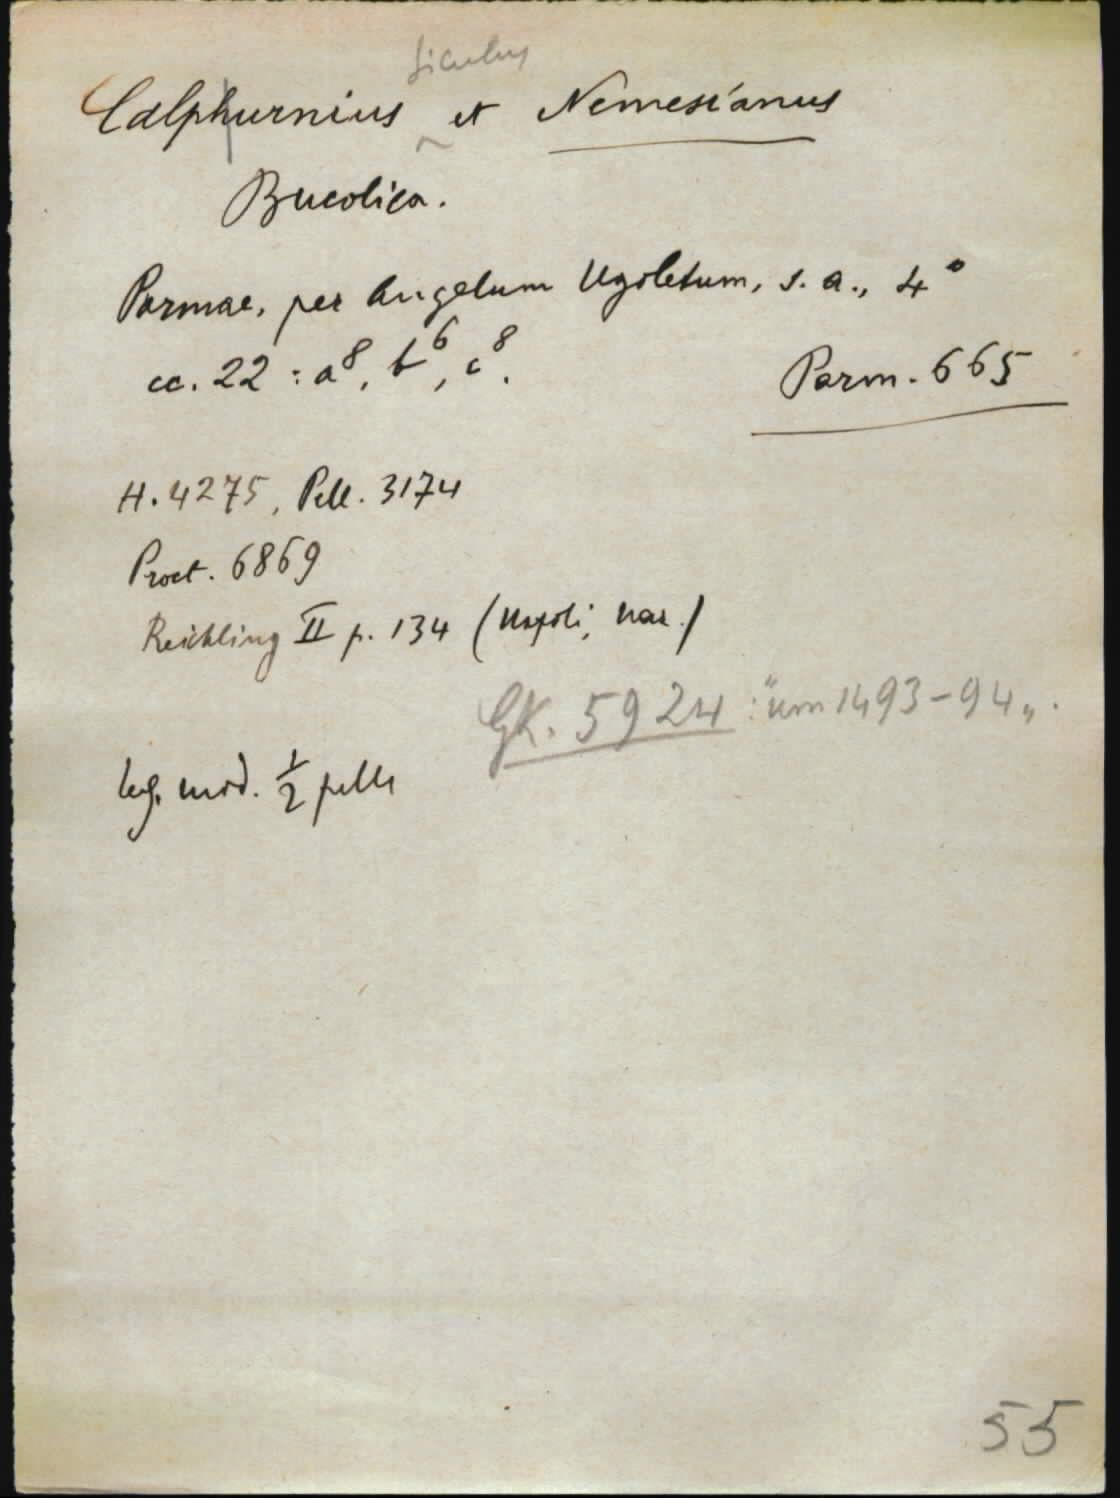 Siculus
Calphurnius et Nemesianus
Bucolica.
Parmae, per Angelum Ugoletum, s. a., 4°
cc. 22 : a⁸, b⁶, c⁸.
Parm. 665
H. 4275, Pell. 3174
Proct. 6869
Reichling II p. 134 (Napoli, Naz.)
GK. 5924 : "um 1493-94„.
leg. mod. ½ pelle
55